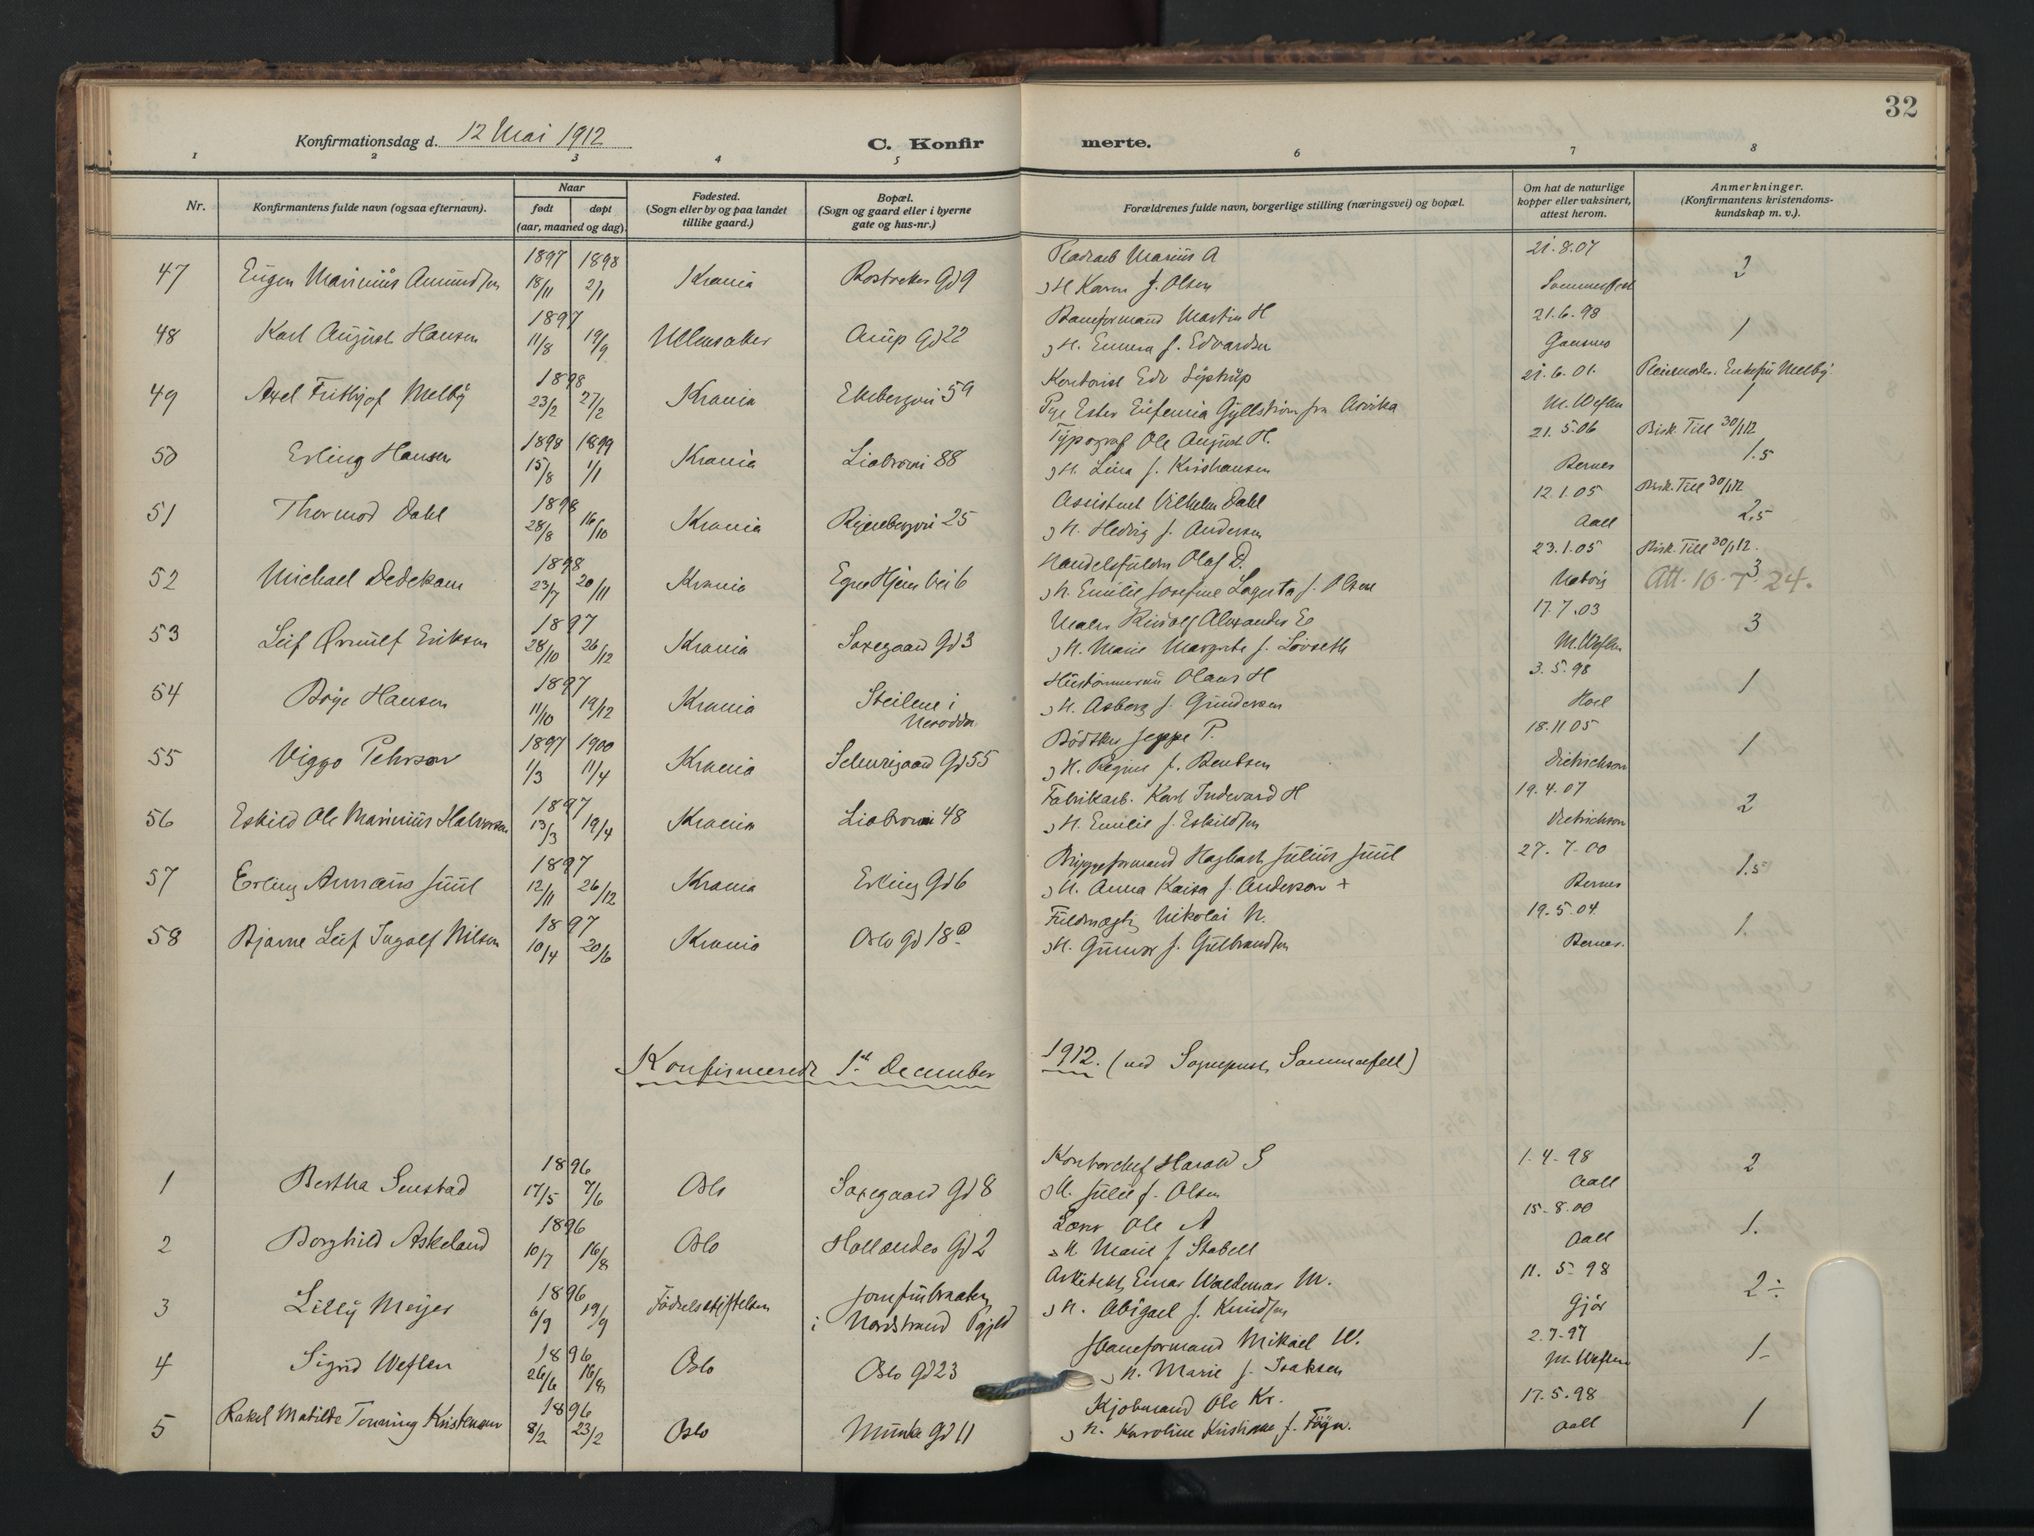 32
Konfirmationsdag d. 12 Mai 1912 C. Konfirmerte.
1 2 3 4 5 6 7 8
Nr. Konfirmantens fulde navn (ogsaa efternavn). Naar født døpt (aar, maaned og dag). Fødested. (Sogn eller by og paa landet tillike gaard.) Bopæl. (Sogn og gaard eller i byerne gate og hus-nr.) Forældrenes fulde navn, borgerlige stilling (næringsvei) og bopæl. Om hat de naturlige kopper eller vaksinert, attest herom. Anmerkninger. (Konfirmantens kristendomskundskap m. v.).
1897 1898 Marius A 21.8.07
47 Eugen Marinius Amundsen 18/11 2/1 Krania Gd 9 M Karen f. Olsen Sommerfest 2
1897 Baneformand Martin H 21.6.98
48 Karl August Hansen 11/8 19/9 Ullensaker Arup Gd 22 M. Emma f. Edvardsen 1
1898 Kontorist Edv 21.6.01 Pleiemoder. Enkefru Melby
49 Axel Frithjof Melby 23/2 27/2 Krania Ekebergvei 59 Pige Ester Eufemia Gyllström fra Arvika M. Weflen 1
1898 1899 Typograf Ole August H. 21.5.06 Bisk. Till 30/1 12
50 Erling Hansen 15/8 1/1 Krania Liabrovei 88 M. Lina f. Kristiansen Bernes 1.5
1898 Assistent Vilhelm Dahl 12.1.05 Bisk. Till 30/1 12
51 Thormod Dahl 28/8 16/10 Krania Ryenbergvei 25 M. Hedvig f. Andersen Aall 2,5
1898 Handelsfuldm Olaf D. 23.1.05 Bisk. Till 30/1 12.
52 Michael Dedekam 23/7 20/11 Krania Egne Hjem vei 6 M. Emilie Josefine Lagerta f. Olsen 3 Att. 10-7-24.
1897 Maler Alexander E 17.7.03
53 Leif Ørnulf Eriksen 28/10 26/12 Krania Saxegaard Gd 3 M. Marie Margrete f. Løvseth M. Weflen 3
1897 Olaus H 3.5.98
54 Børge Hansen 11/10 19/12 Krania Steilene i Nesodden M. Asberg f. Gundersen Hoel 1
1897 1900 Bødtker Jeppe P. 18.11.05
55 Viggo Pehrson 1/3 11/4 Krania Schweigaard Gd 55 M. Regine f. Bentsen Dietrichson 1
1897 Fabrikarb. Karl Indevard H 19.4.07
56 Eskild Ole Marinius Halvorsen 13/3 19/4 Krania Liabrovei 48 M. Emilie f. Eskildsen Dietrichson 2
1897 Bryggeformand Hagbart Julius Juul 27.7.00
57 Erling Annæus Juul 12/11 26/12 Krania Erling Gd 6 M. Anna Kaisa f. Anderson + Bernes 1.5
1897 Fuldmægtig Nikolai N. 19.5.04
58 Bjarne Leif Ingolf Nilsen 10/4 20/6 Krania Oslo Gd 18 M. Gunvor f. Gulbrandsen Bernes. 1.
Konfirmerede 1st December 1912. (ved Sogneprest Sommerfelt)
1896 Kontorchef Harald S 1.4.98
1 Bertha Senstad 17/5 7/6 Oslo Saxegaard Gd 8 M. Julie f. Olsen Aall 2
1896 Lærer Ole A 15.8.00
2 Borghild Askeland 10/7 16/8 Oslo Hollender Gd 2 M Marie f Stabell Aall 1.
1896 Arkitekt Einar Waldemar M. 11.5.98
3 Lilly Meyer 6/9 19/9 Fødselsstiftelsen Jomfrubraaten i Nordstrand M. Abigael f. Knudsen Gjør 2÷
1896 Baneformand Mikael W. 2.7.97
4 Sigrid Weflen 26/6 16/8 Oslo Oslo Gd 23 M. Marie f. Isaksen M. Weflen 1-
1896 Kjøbmand Ole Kr. 17.5.98
5 Rakel Matilde Kristensen 8/2 23/2 Oslo Munke Gd 11 M. Karoline Kristiane f. Føyn. Aall 1